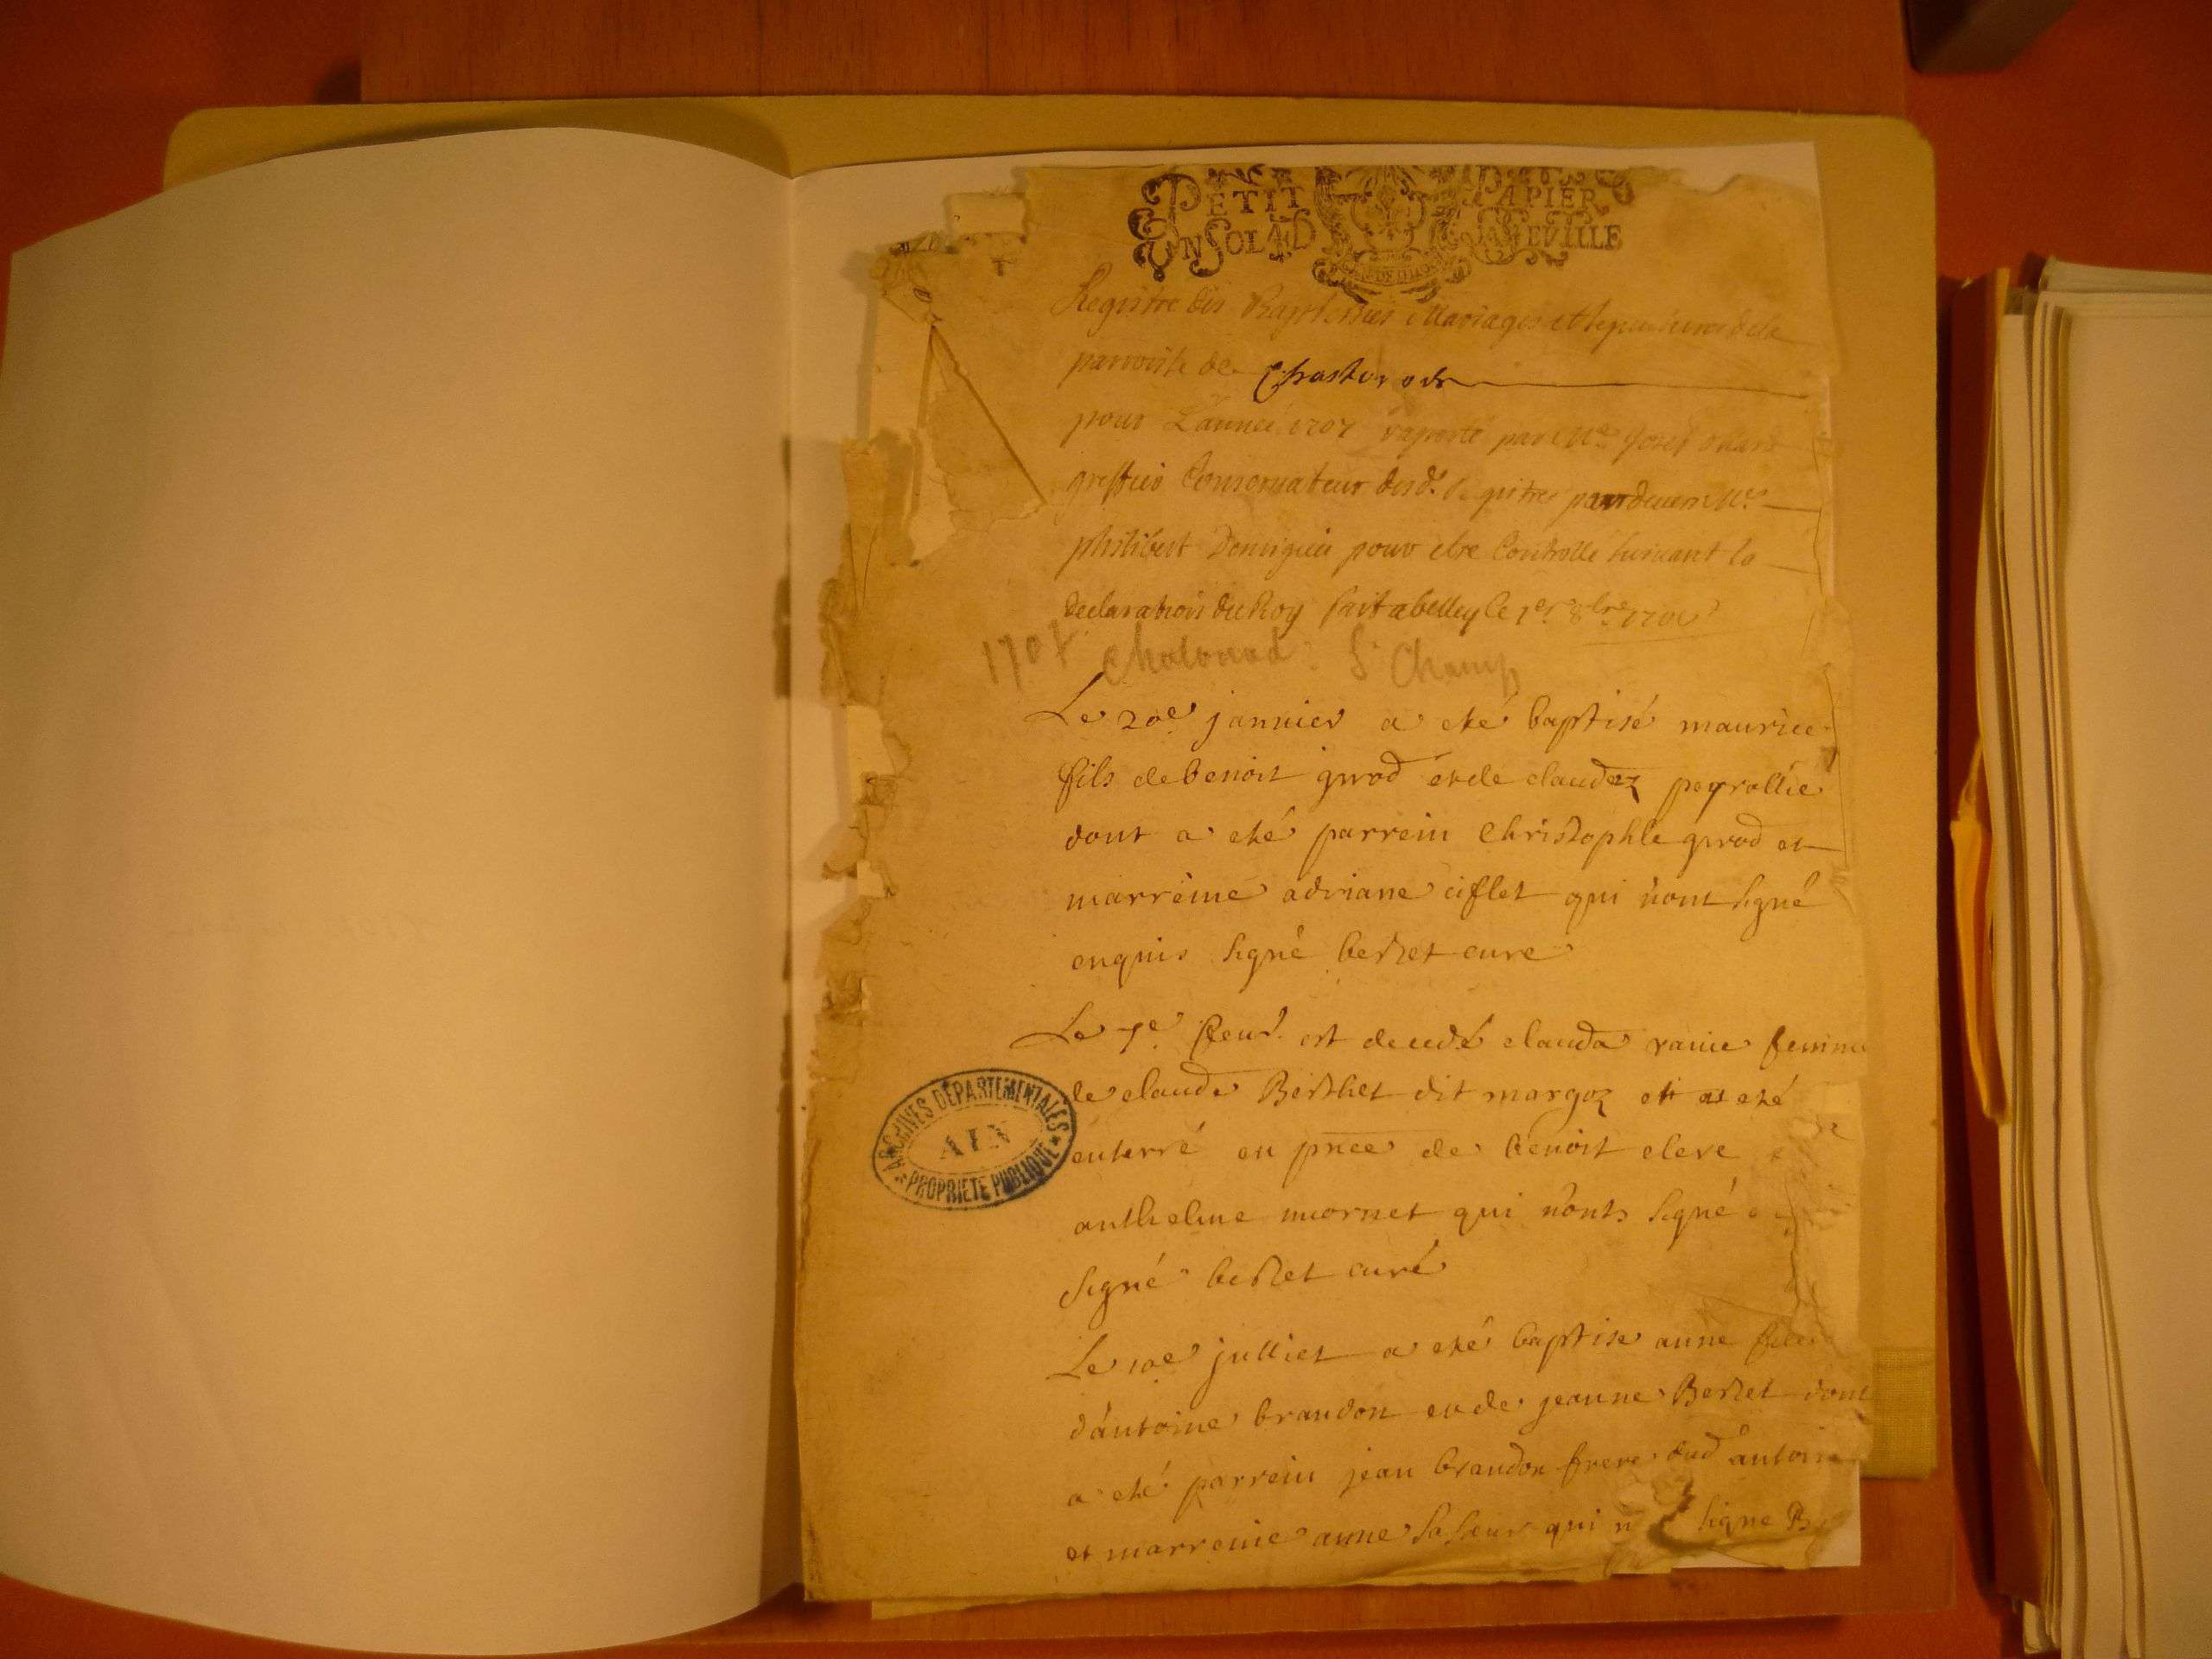 PETIT PAPIER
UN SOL 4D
Registre des Baptesmes Mariages et sepultures de la
parroisse de Chastonod
pour L'année 1707 raporté par Me Josef
greffier Conservateur desd. Registres pardevers Me
philibert pour etre Controllé suivant la
declaration du Roy fait a belley le 1er 8bre
1707 Chatonod : St Champ
Le 20e janvier a eté baptisé maurice
fils de benoit girod et de claudaz peyrollie
dont a eté parrein Christophle girod et
marreine adriane ciflet qui n'ont signé
enquis signé bertet curé
Le 7e est decedé clauda ravie femme
de claude Berthet dit margoz et a eté
enterré en pnce de benoit clere
anthelme mornet qui n'onts signé
signé bertet curé
Le 10e julliet a eté baptise anne fille
d'antoine brandon et de jeanne Bertet dont
a eté parrein jean brandon frere dud antoine
et marreine anne sa soeur qui signe
ARCHIVES DÉPARTEMENTALES
AIN
PROPRIÉTÉ PUBLIQUE